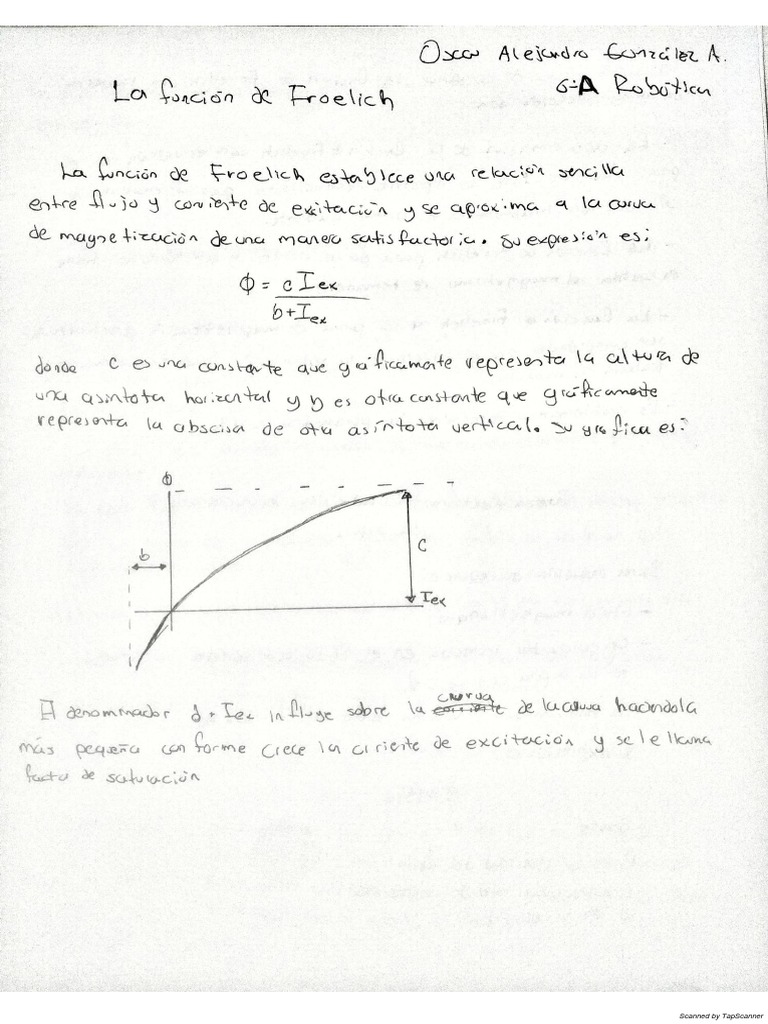 Oscar Alejandro González A.
6-A Robótica
La función de Froelich
La función de Froelich establece una relación sencilla
entre flujo y corriente de exitación y se aproxima a la curva
de magnetización de una manera satisfactoria. Su expresión es:
Φ = c Iex
b+Iex
donde c es una constante que gráficamente representa la altura de
una asintota horizontal y b es otra constante que gráficamente
representa la abscisa de otra asíntota vertical. Su grafica es:
Φ
b
c
Iex
El denominador d + Iex influye sobre la curva de la curva haciendola
más pequeña conforme crece la ciriente de excitación y se le llama
facto de saturación
Scanned by TapScanner